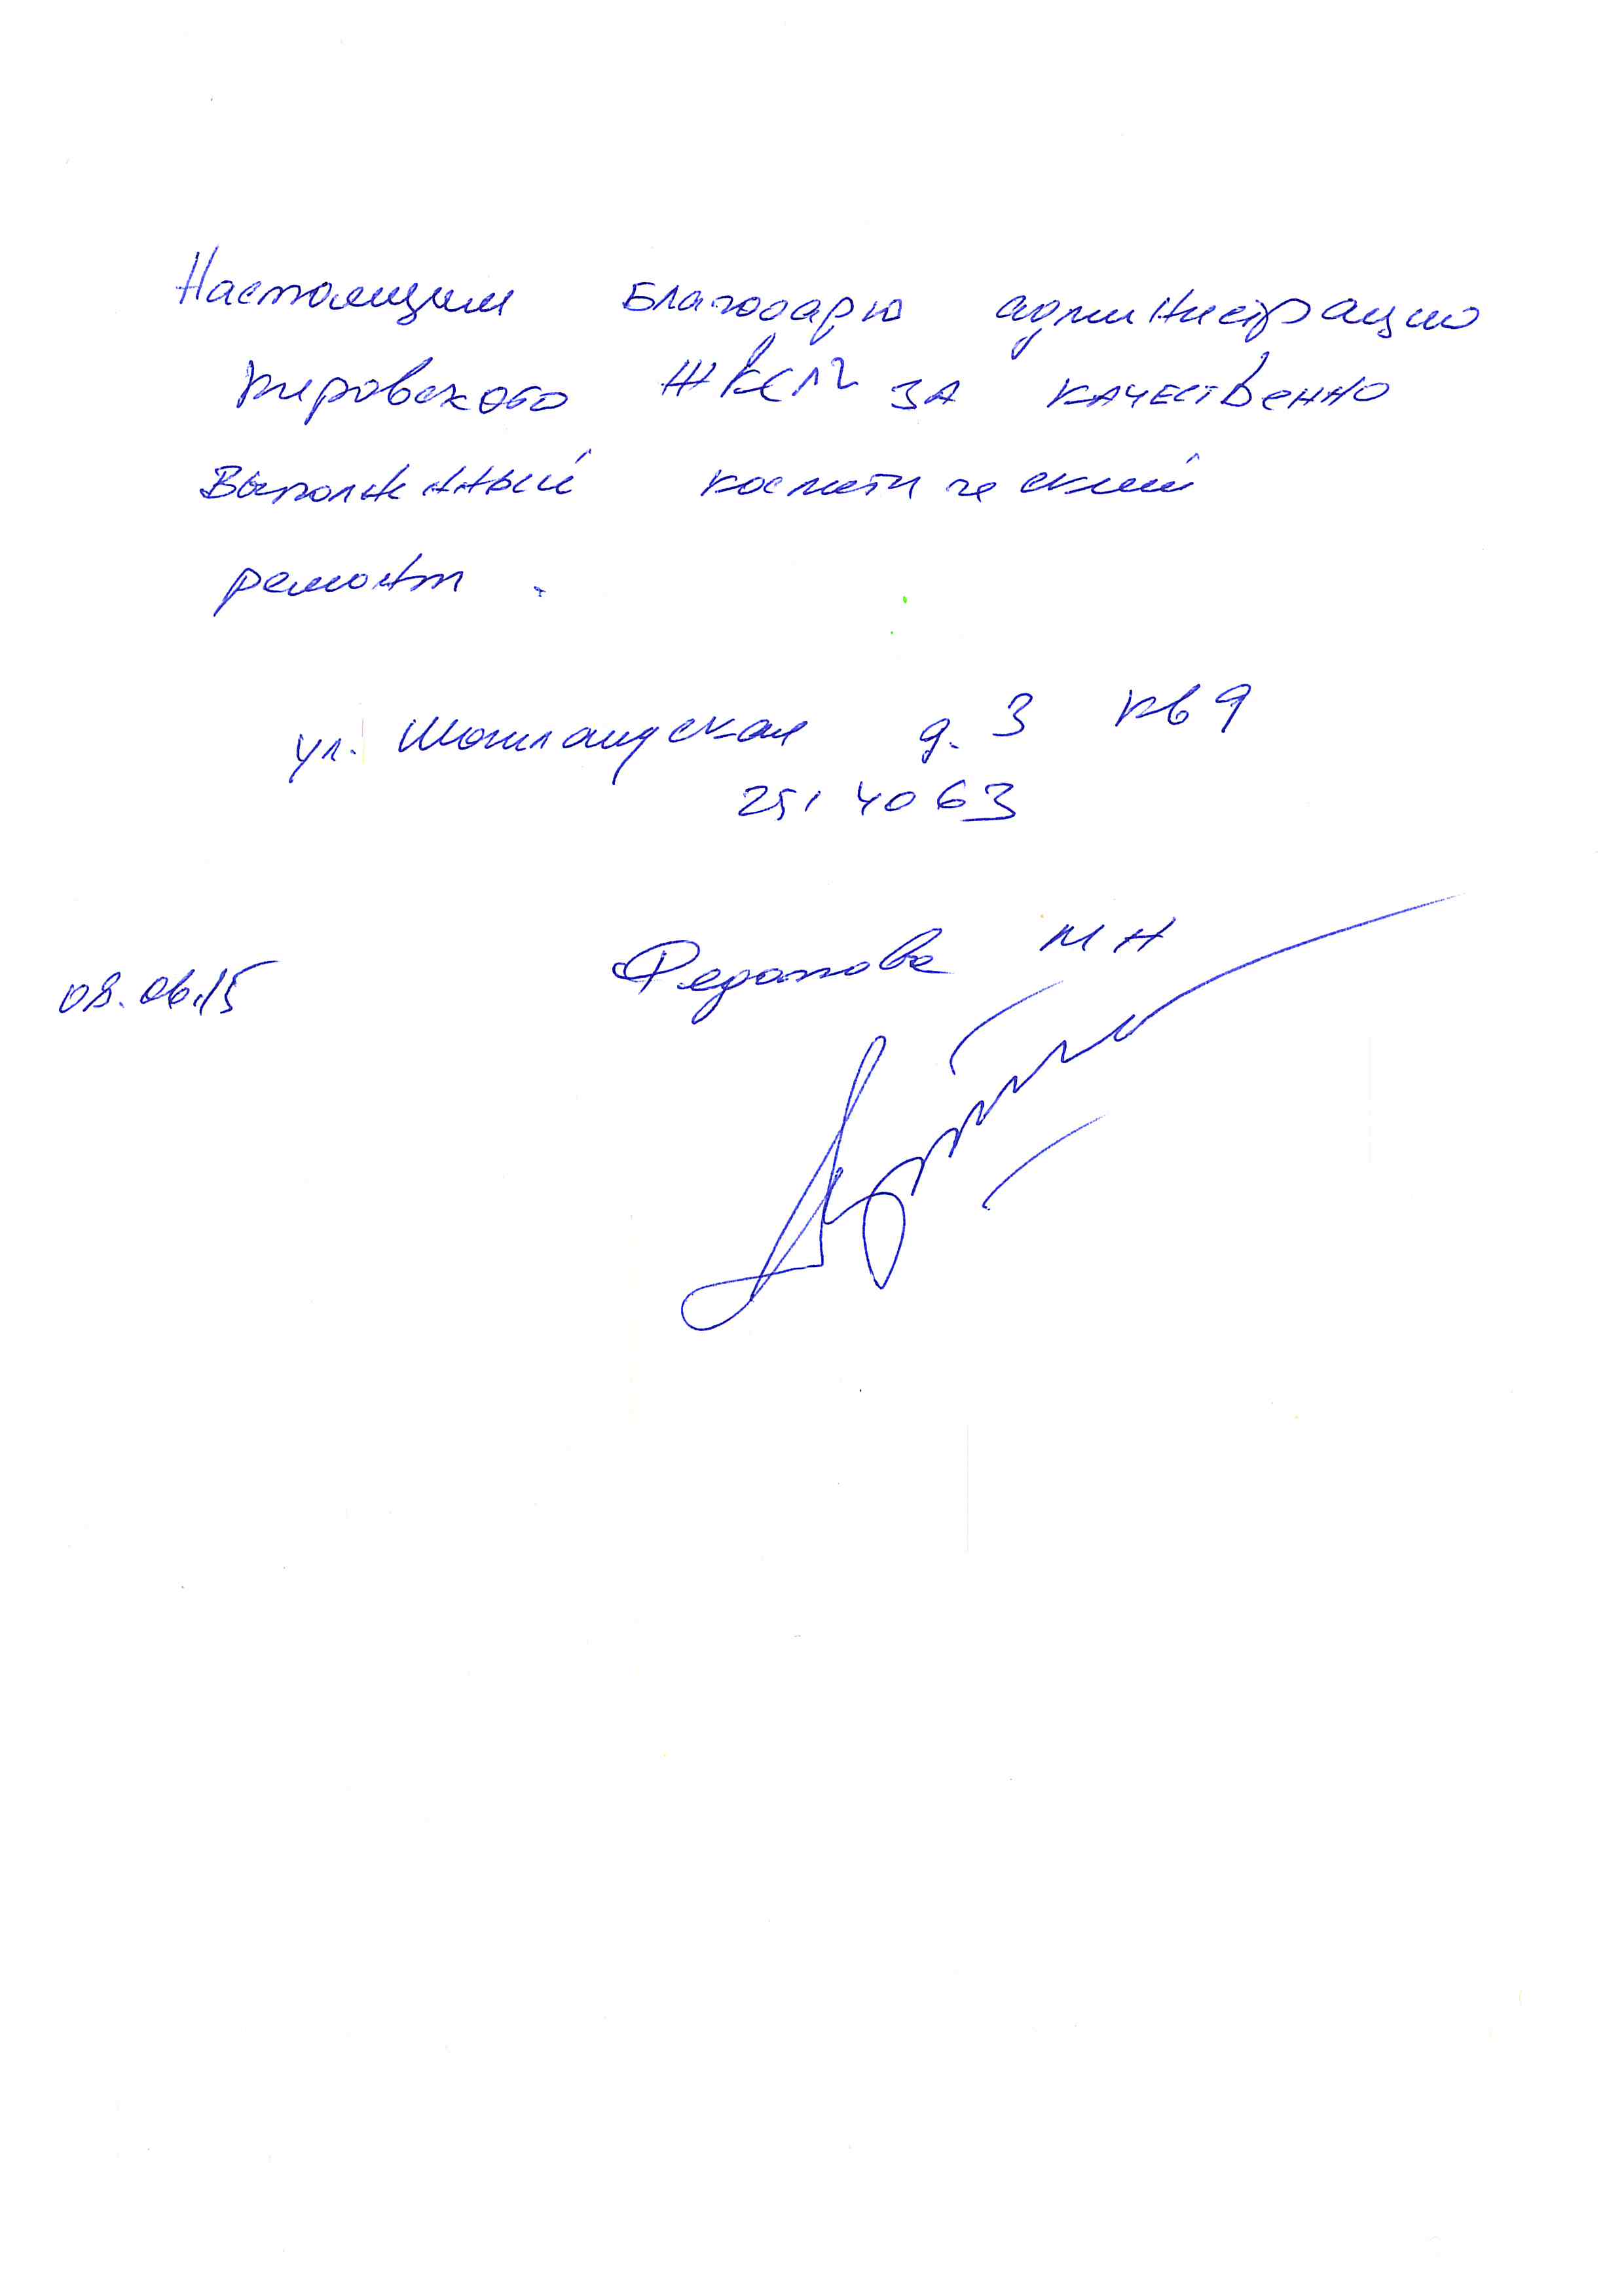 Настоящим Благодарю администрацию
Кировского ЖКС№2 за качественно
Выполненный косметический
ремонт.
ул. Шотландская д. 3 кв 9
251 40 63
М Н
08.06.15